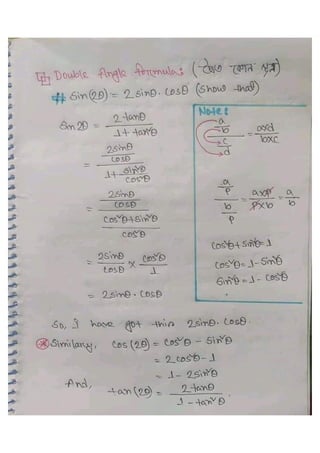 Double Angle formula: (
# Sin(2θ) = 2 sinθ. cosθ (show that)
Sin 2θ = 2 tanθ / 1 + tan²θ
= 2sinθ / cosθ / 1 + sin²θ / cos²θ
= 2sinθ / cosθ / cos²θ + sin²θ / cos²θ
= 2sinθ / cosθ × cos²θ / 1
= 2 sinθ. cosθ
Note:
a / b / c / d = a×d / b×c
a / p / b / p = a×p / p×b = a / b
cos²θ + sin²θ = 1
cos²θ = 1 - sin²θ
sin²θ = 1 - cos²θ
So, I have got this 2 sinθ. cosθ.
Similarly, cos (2θ) = cos²θ - sin²θ
= 2 cos²θ - 1
= 1 - 2 sin²θ
And, tan (2θ) = 2 tanθ / 1 - tan²θ .